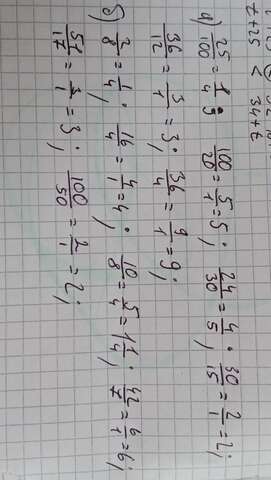 t+25 < 34+t
а) 25/100 = 1/4; 100/20 = 5/1 = 5; 24/30 = 4/5; 30/15 = 2/1 = 2;
36/12 = 3/1 = 3; 36/4 = 9/1 = 9;
б) 2/8 = 1/4; 16/4 = 4/1 = 4; 10/8 = 5/4 = 1 1/4; 42/7 = 6/1 = 6;
51/17 = 3/1 = 3; 100/50 = 2/1 = 2;